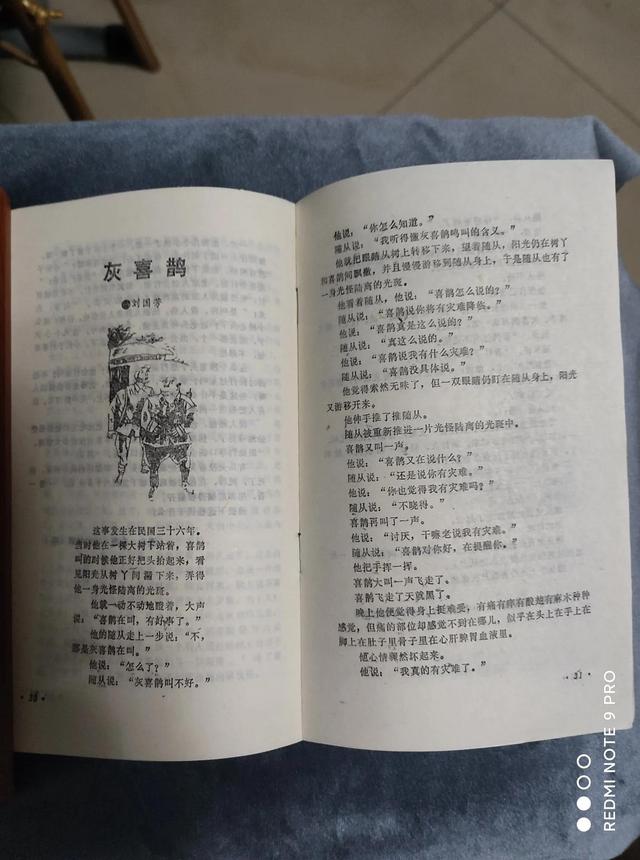 灰喜鹊
刘国芳
这事发生在民国三十六年。
当时他在一棵大树下站着，喜鹊
叫的时候他正好把头抬起来，看
见阳光从树丫间漏下来，弄得
他一身光怪陆离的光斑。
他就一动不动地瞪着，大声
说：“喜鹊在叫，有好事了。”
他的随从走上一步说：“不，
那是灰喜鹊在叫。”
他说：“怎么了？”
随从说：“灰喜鹊叫不好。”
·30·
他说：“你怎么知道。”
随从说：“我听得懂灰喜鹊鸣叫的含义。”
他就把眼睛从树上转移下来，望着随从，阳光仍在树丫
和喜鹊间飘散，并且慢慢游移到随从身上，于是随从也有了
一身光怪陆离的光斑。
他看着随从，他说：“喜鹊怎么说的？”
随从说：“喜鹊说你将有灾难降临。”
他说：“喜鹊真是这么说的？”
随从说：“真这么说的。”
他说：“喜鹊说我有什么灾难？”
随从说：“喜鹊没具体说。”
他觉得索然无味了，但一双眼睛仍盯在随从身上，阳光
又游移开来。
他伸手推了推随从。
随从被重新推进一片光怪陆离的光斑中。
喜鹊又叫一声。
他说：“喜鹊又在说什么？”
随从说：“还是说你有灾难。”
他说：“你也觉得我有灾难吗？”
随从说：“不晓得。”
喜鹊再叫了一声。
他说：“讨厌，干嘛老说我有灾难。”
随从说：“喜鹊对你好，在提醒你。”
他把手挥一挥。
喜鹊大叫一声飞走了。
喜鹊飞走了天就黑了。
晚上他便觉得身上挺难受，有痛有痒有酸越有麻木种种
感觉，但痛的部位却感觉不到在哪儿，似乎在头上在手上在
脚上在肚子里骨子里在心肝脾胃血液里。
他心情骤然坏起来。
他说：“我真的有灾难了。”
·31·
REDMI NOTE 9 PRO